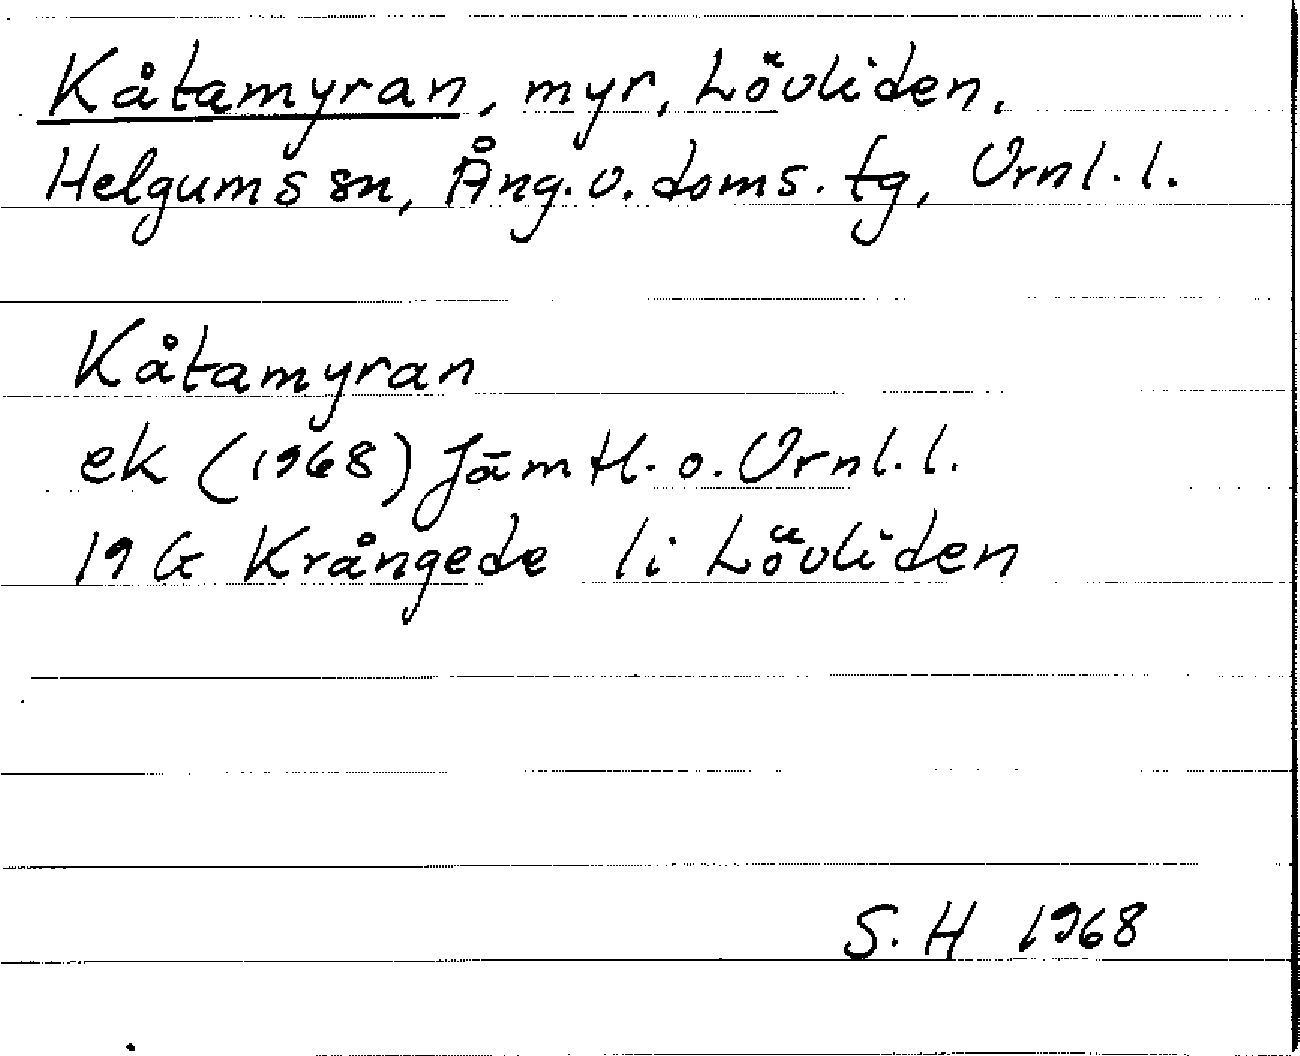 Kåtamyran, myr, Lövliden,
Helgums sn, Ång. v. doms. tg, Vrnl. l.
Kåtamyran
ek (1968) Jämtl. o. Vrnl. l.
19 G Krångede li Lövliden
S. H 1968